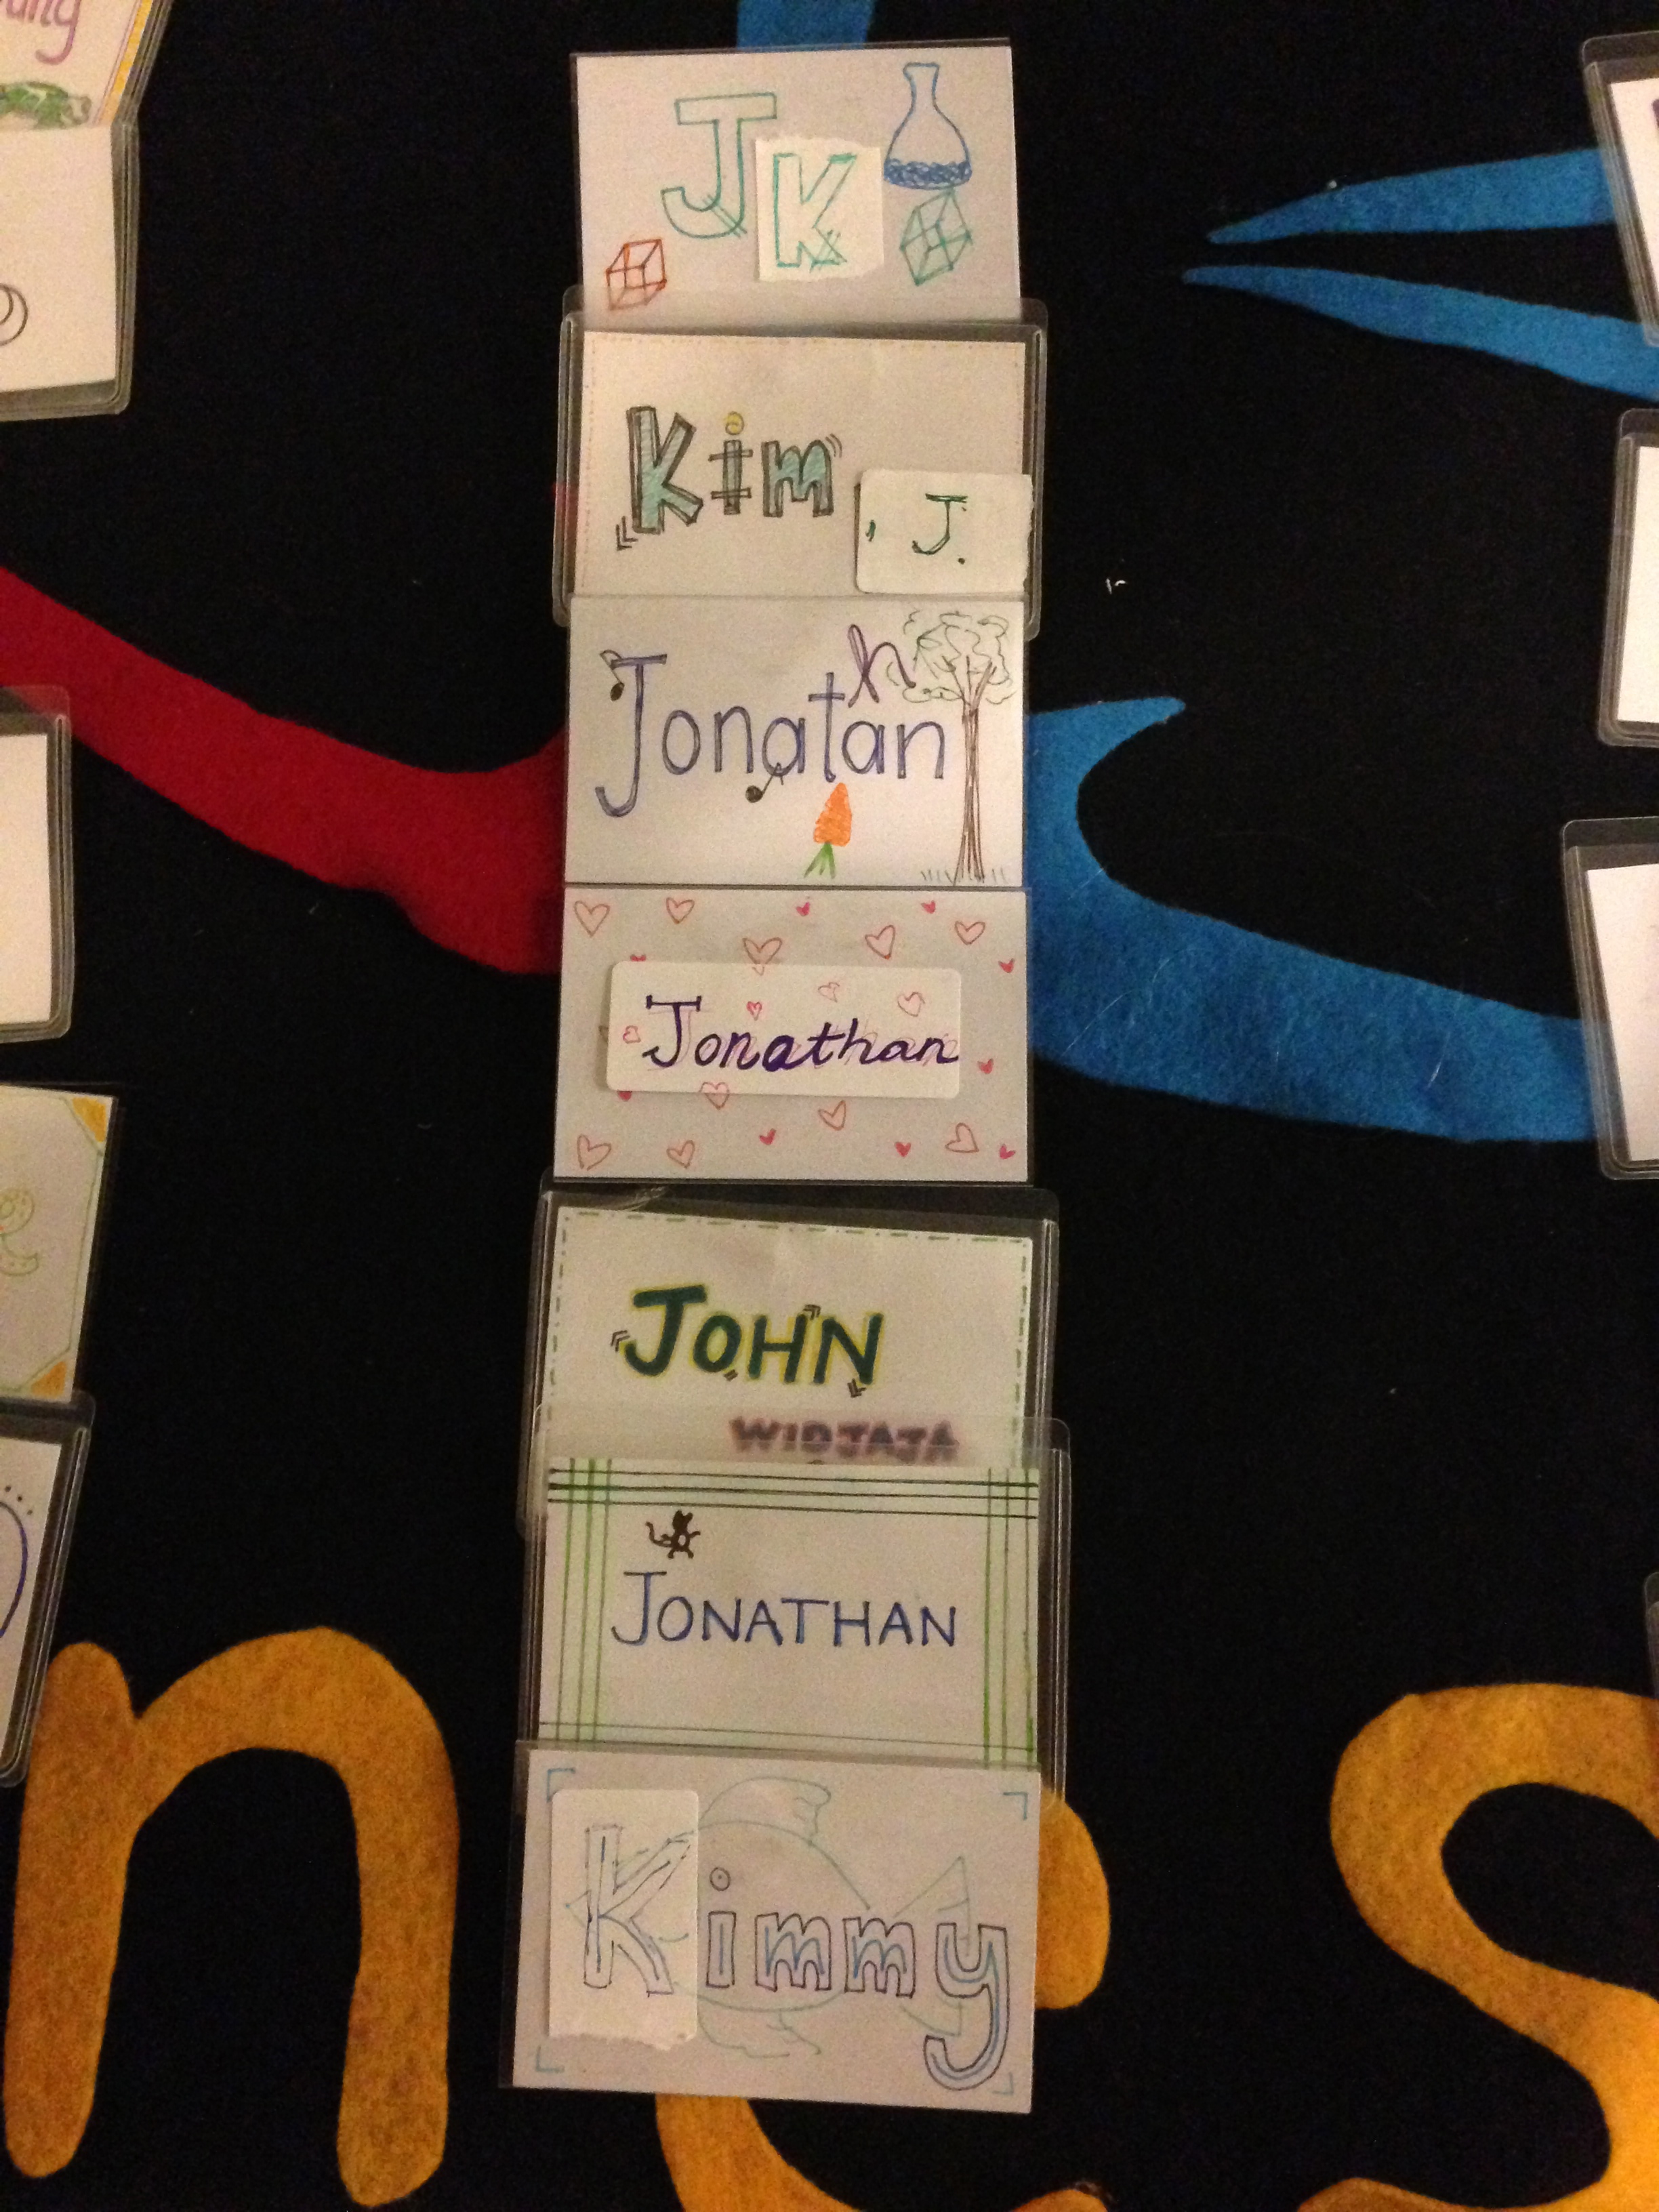 JK
Kim
, J.
h
Jonatan
Jonathan
JOHN
WIDJAJA
JONATHAN
Kimmy